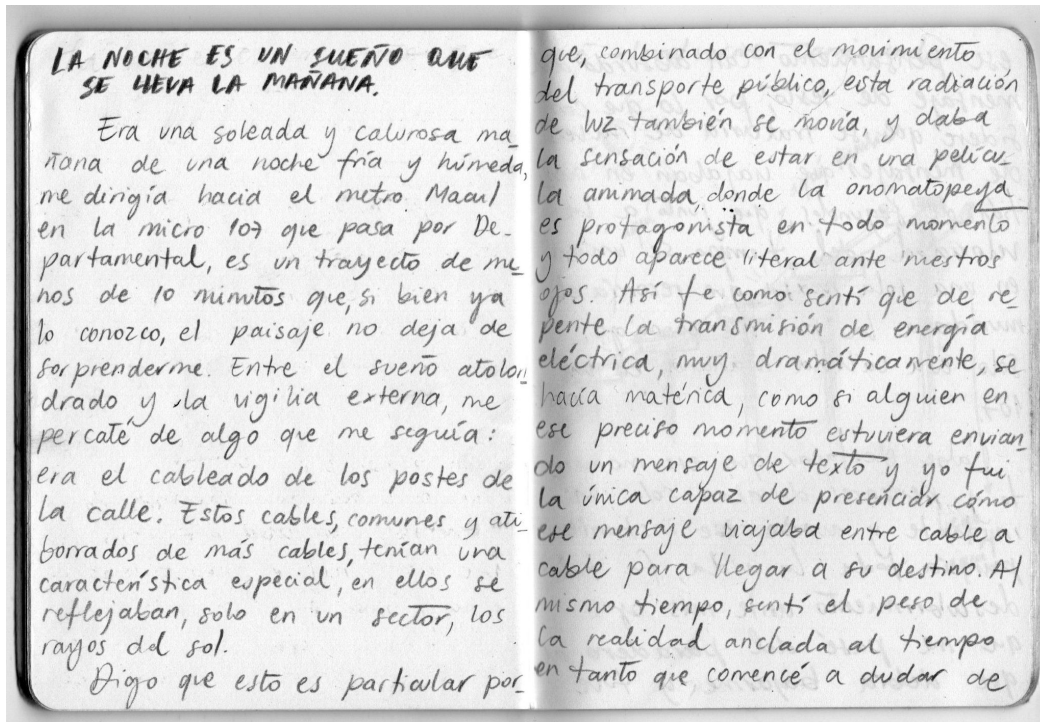 LA NOCHE ES UN SUEÑO QUE
SE LLEVA LA MAÑANA.
Era una soleada y calurosa ma
ñana de una noche fría y húmeda,
me dirigía hacia el metro Macul
en la micro 107 que pasa por De-
partamental, es un trayecto de me
nos de 10 minutos que, si bien ya
lo conozco, el paisaje no deja de
sorprenderme. Entre el sueño atolon
drado y la vigilia externa, me
percaté de algo que me seguía:
era el cableado de los postes de
la calle. Estos cables, comunes y ati
borrados de más cables, tenían una
característica especial, en ellos se
reflejaban, solo en un sector, los
rayos del sol.
Digo que esto es particular por-
que, combinado con el movimiento
del transporte público, esta radiación
de luz también se movía, y daba
la sensación de estar en una pelícu
la animada donde la onomatopeya
es protagonista en todo momento
y todo aparece literal ante nuestros
ojos. Así fe como sentí que de re-
pente la transmisión de energía
eléctrica, muy dramáticamente, se
hacía matérica, como si alguien en
ese preciso momento estuviera envian
do un mensaje de texto y yo fui
la única capaz de presenciar cómo
ese mensaje viajaba entre cable a
cable para llegar a su destino. Al
mismo tiempo, sentí el peso de
la realidad anclada al tiempo
en tanto que comencé a dudar de